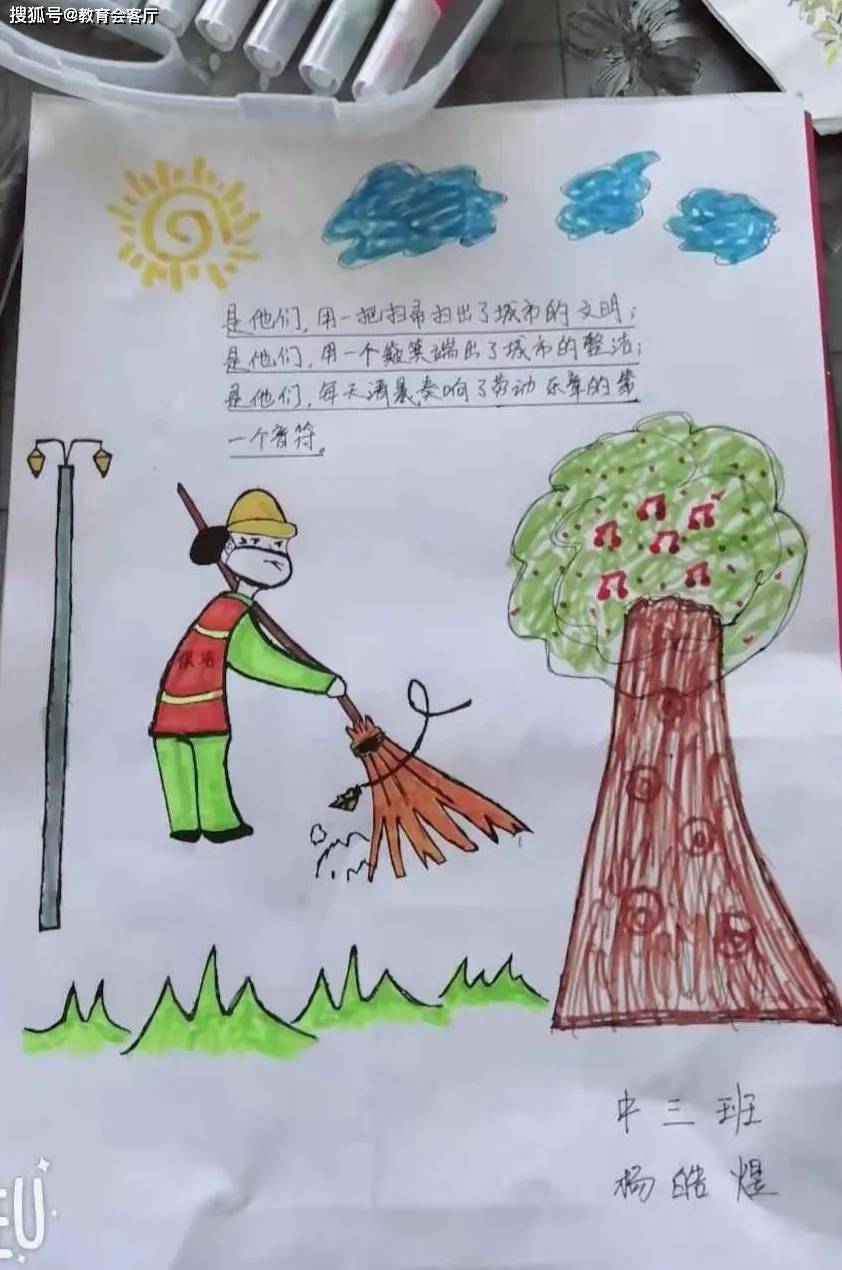 搜狐号@教育会客厅
是他们,用一把扫帚扫出了城市的文明;
是他们,用一个簸箕端出了城市的整洁;
是他们,每天清晨奏响了劳动乐章的第
一个音符。
保洁
中三班
杨皓煜
EU